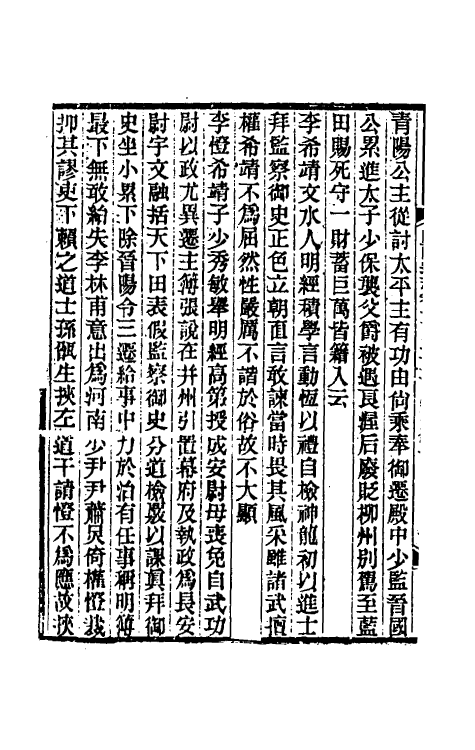 青陽公主從討太平主有功由尙乘奉御遷殿中少監晉國
公累進太子少保襲父爵被遇良渥后廢貶柳州別駕至藍
田賜死守一財蓄巨萬皆籍入云
李希靖文水人明經積學言動恆以禮自檢神龍初以進士
拜監察御史正色立朝直言敢諫當時畏其風采雖諸武擅
權希靖不爲屈然性嚴厲不諧於俗故不大顯
李憕希靖子少秀敏舉明經高第授成安尉母喪免自武功
尉以政尤異遷主簿張說在并州引置幕府及執政爲長安
尉宇文融括天下田表假監察御史分道檢覈以課眞拜御
史坐小累下除晉陽令三遷給事中力於治有任事稱明簿
最下無敢紿失李林甫意出爲河南少尹尹蕭炅倚權憕裁
抑其謬吏下賴之道士孫甑生挾左道干請憕不爲應故挾